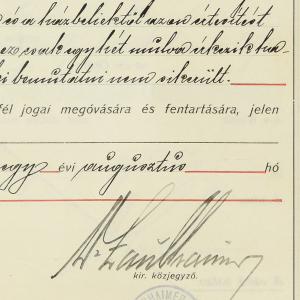 és a házbeliektől azon értesítést
ez csak egy hét mulva érkezik ha-
bemutatni nem sikerült.
fél jogai megóvására és fentartására, jelen
egy évi augusztus hó
kir. közjegyző.